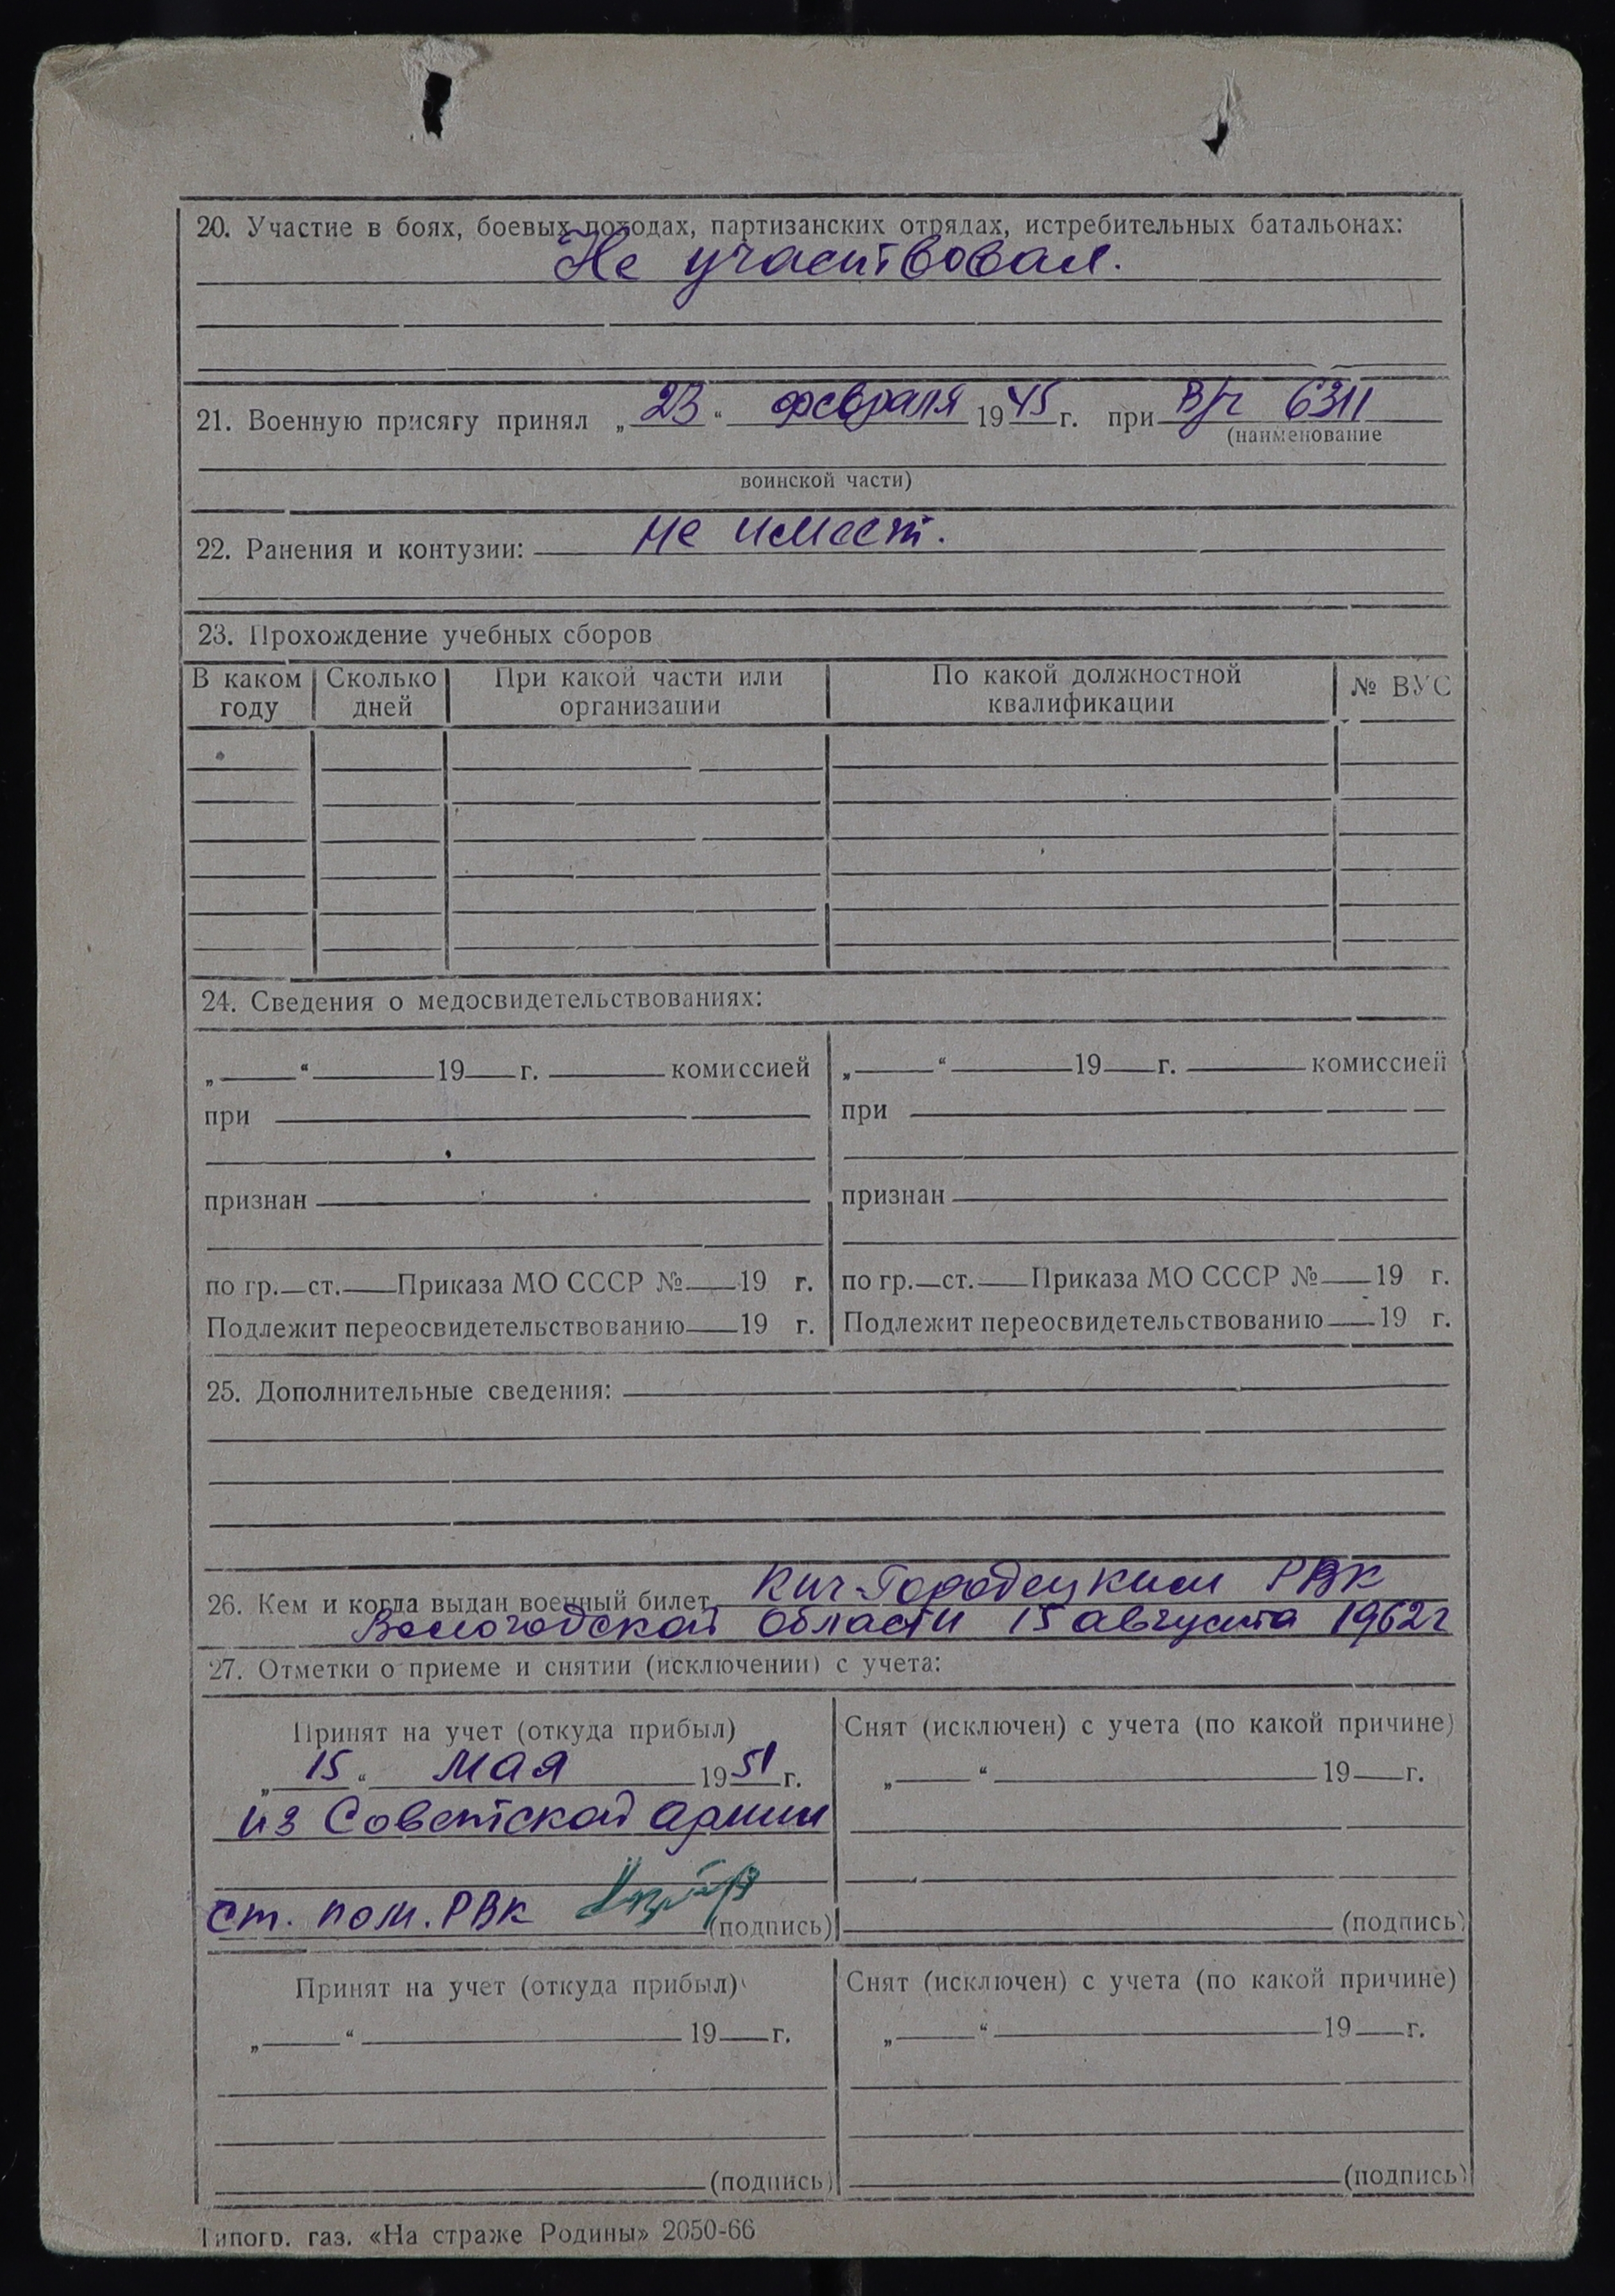 20. Участие в боях, боевых походах, партизанских отрядах, истребительных батальонах:
Не участвовал.
21. Военную присягу принял „23“ февраля 1945 г. при в/ч 6311
(наименование
воинской части)
22. Ранения и контузии: не имеет.
23. Прохождение учебных сборов
В каком году | Сколько дней | При какой части или организации | По какой должностной квалификации | № ВУС
24. Сведения о медосвидетельствованиях:
„ “ 19 г. комиссией
при
признан
по гр. ст. Приказа МО СССР № 19 г.
Подлежит переосвидетельствованию 19 г.
„ “ 19 г. комиссией
при
признан
по гр. ст. Приказа МО СССР № 19 г.
Подлежит переосвидетельствованию 19 г.
25. Дополнительные сведения:
26. Кем и когда выдан военный билет Кич-Городецким РВК
Вологодской области 15 августа 1962 г
27. Отметки о приеме и снятии (исключении) с учета:
Принят на учет (откуда прибыл)
„15“ мая 1951 г.
из Советской армии
ст. пом. РВК (подпись)
Снят (исключен) с учета (по какой причине)
„ “ 19 г.
(подпись)
Принят на учет (откуда прибыл)
„ “ 19 г.
(подпись)
Снят (исключен) с учета (по какой причине)
„ “ 19 г.
(подпись)
Типогр. газ. «На страже Родины» 2050-66